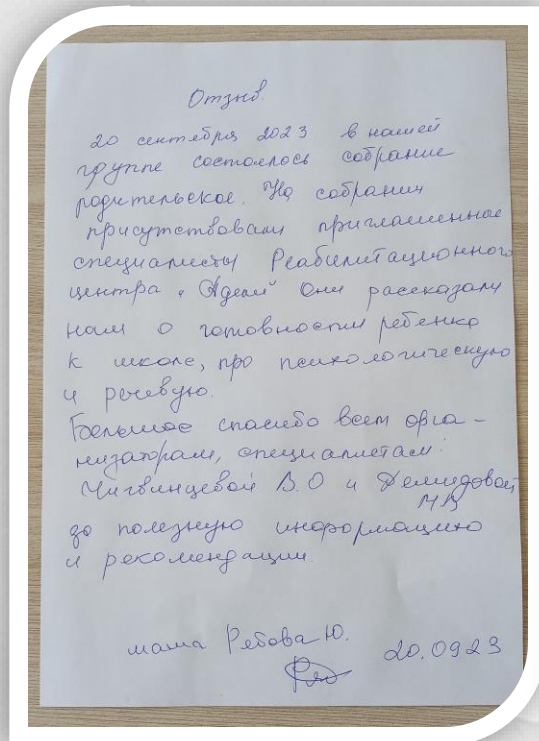 Отзыв.
20 сентября 2023 в нашей
группе состоялось собрание
родительское. На собрании
присутствовали приглашенные
специалисты Реабилитационного
центра "Адели" Они рассказали
нам о готовности ребенка
к школе, про психологическую
и речевую.
Большое спасибо всем орга-
низаторам, специалистам:
Чигвинцевой В.О и Демидовой
НВ
за полезную информацию
и рекомендации.
мама Рябова Ю.
20.0923